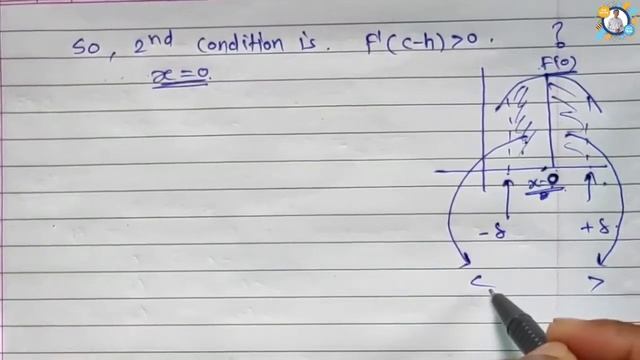 So, 2nd condition is. F'(c-h)>0. ?
x=0
F(0)
x=0
-δ +δ
< >